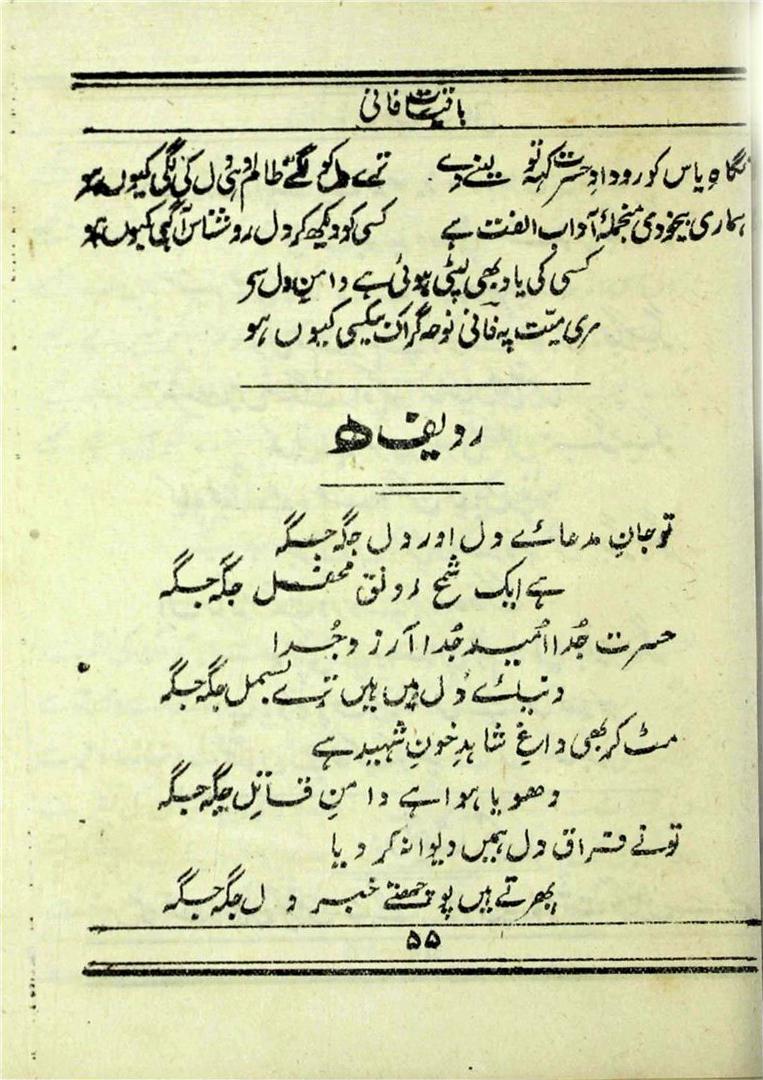 باقیات فانی
نگاہِ یاس کو رودادِ حسرت کہہ تو لینے دے ترے دل کو لگے ظالم وہی دل کی لگی کیوں ہو
ہماری بیخودی منجملۂ آدابِ الفت ہے کسی کو دیکھ کر دل روشناسِ آگہی کیوں ہو
کسی کی یاد بھی لپٹی ہوئی ہے دامنِ دل سے
مری میت پہ فانی نوحہ گر اک بیکسی کیوں ہو
ردیف ھ
تو جانِ مدعائے دل اور دل جگہ جگہ
ہے ایک شمع رونق محفل جگہ جگہ
حسرت جُدا اُمید جُدا آرزو جُدا
دنیائے دل میں ہیں ترے بسمل جگہ جگہ
مٹ کر بھی داغ شاہدِ خونِ شہید ہے
دھویا ہوا ہے دامنِ قاتل جگہ جگہ
تونے فراق دل ہمیں دیوانہ کر دیا
پھرتے ہیں پوچھتے خبر دل جگہ جگہ
۵۵